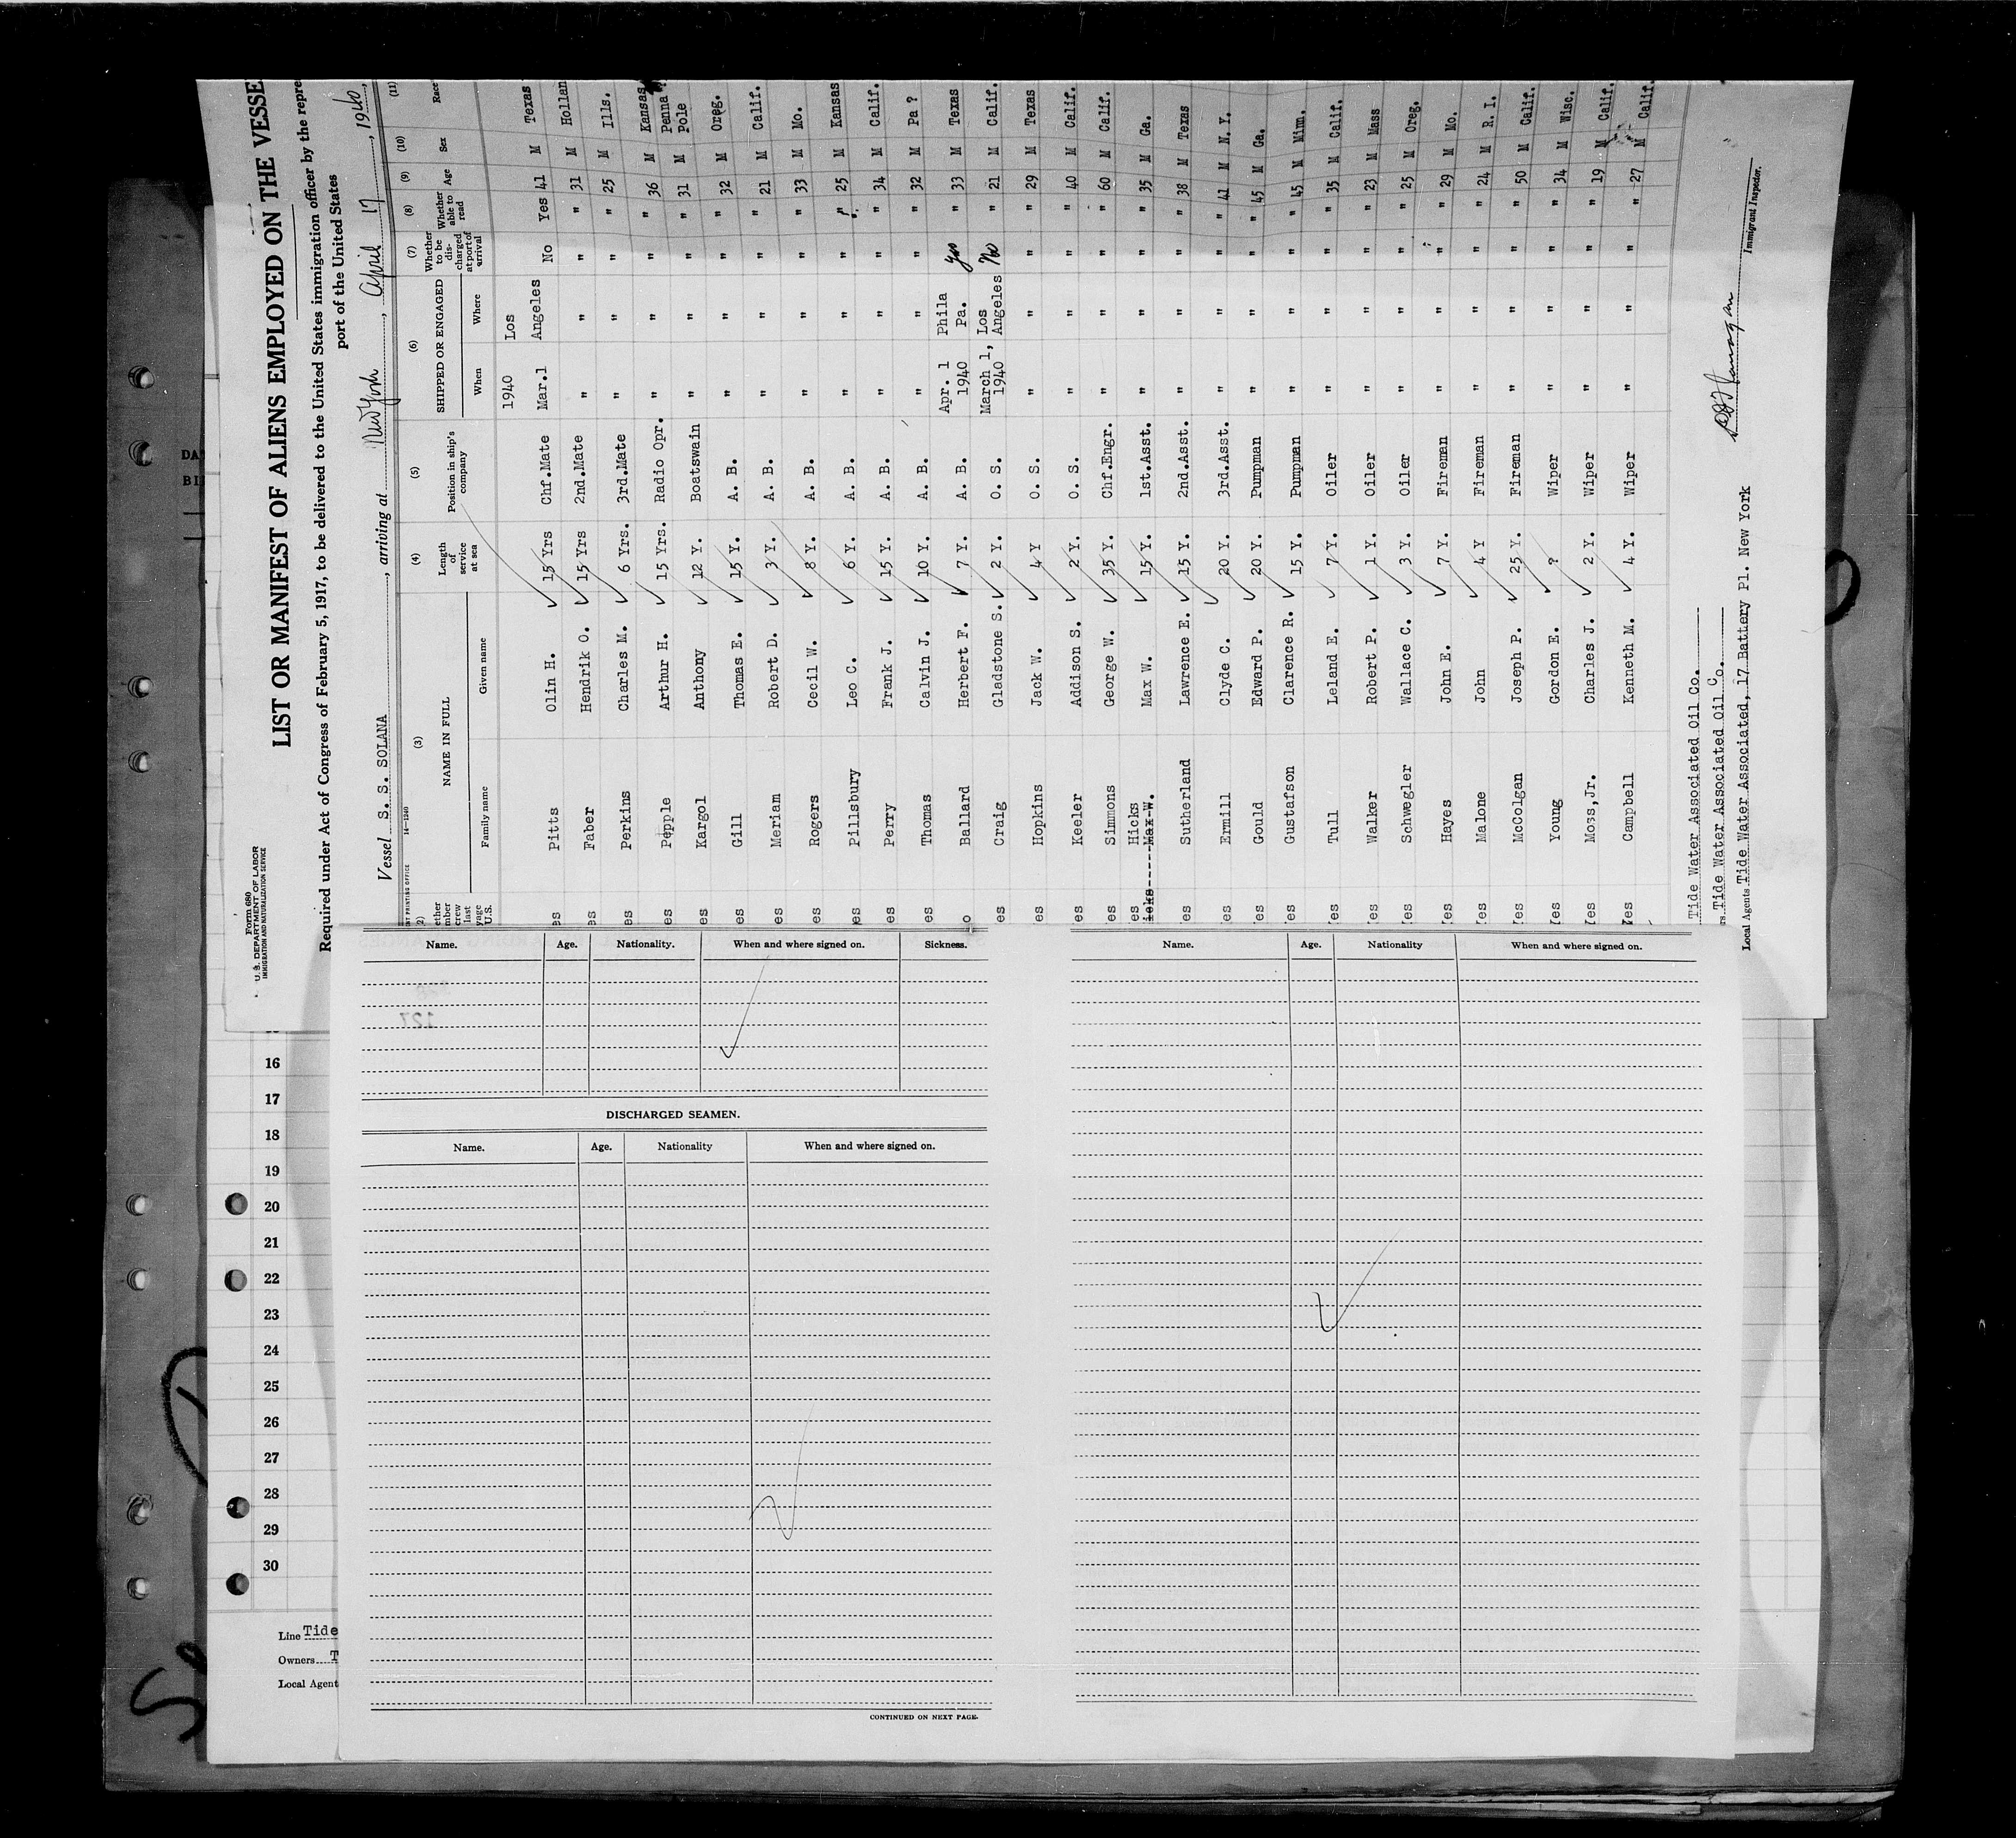 Form 680
U. S. DEPARTMENT OF LABOR
IMMIGRATION AND NATURALIZATION SERVICE
LIST OR MANIFEST OF ALIENS EMPLOYED ON THE VESSE
Required under Act of Congress of February 5, 1917, to be delivered to the United States immigration officer by the repre
port of the United States
Vessel S. S. SOLANA, arriving at New York, April 17, 1940,
14—1240
(3) (4) (5) (6) (7) (8) (9) (10) (11)
NAME IN FULL Length of service at sea Position in ship's company SHIPPED OR ENGAGED Whether to be discharged at port of arrival Whether able to read Age Sex Race
Family name Given name When Where
1940 Los
es Pitts Olin H. 15 Yrs Chf.Mate Mar.1 Angeles No Yes 41 M Texas
es Faber Hendrik O. 15 Yrs 2nd.Mate " " " " 31 M Hollan
es Perkins Charles M. 6 Yrs. 3rd.Mate " " " " 25 M Ills.
es Pepple Arthur H. 15 Yrs. Radio Opr. " " " " 36 M Kansas
es Kargol Anthony 12 Y. Boatswain " " " " 31 M Penna Pole
es Gill Thomas E. 15 Y. A. B. " " " " 32 M Oreg.
es Meriam Robert D. 3 Y. A. B. " " " " 21 M Calif.
es Rogers Cecil W. 8 Y. A. B. " " " " 33 M Mo.
es Pillsbury Leo C. 6 Y. A. B. " " " " 25 M Kansas
es Perry Frank J. 15 Y. A. B. " " " " 34 M Calif.
es Thomas Calvin J. 10 Y. A. B. " " " " 32 M Pa ?
o Ballard Herbert F. 7 Y. A. B. Apr. 1 1940 Phila Pa. yes " 33 M Texas
es Craig Gladstone S. 2 Y. O. S. March 1, 1940 Los Angeles No " 21 M Calif.
es Hopkins Jack W. 4 Y O. S. " " " " 29 M Texas
es Keeler Addison S. 2 Y. O. S. " " " " 40 M Calif.
es Simmons George W. 35 Y. Chf.Engr. " " " " 60 M Calif.
es Hicks Max W. 15 Y. 1st.Asst. " " " " 35 M Ga.
icks-----Max-W.
es Sutherland Lawrence E. 15 Y. 2nd.Asst. " " " " 38 M Texas
es Ermill Clyde C. 20 Y. 3rd.Asst. " " " " 41 M N. Y.
es Gould Edward P. 20 Y. Pumpman " " " " 45 M Ga.
es Gustafson Clarence R. 15 Y. Pumpman " " " " 45 M Minn.
es Tull Leland E. 7 Y. Oiler " " " " 35 M Calif.
es Walker Robert P. 1 Y. Oiler " " " " 23 M Mass
es Schwegler Wallace C. 3 Y. Oiler " " " " 25 M Oreg.
es Hayes John E. 7 Y. Fireman " " " " 29 M Mo.
es Malone John 4 Y Fireman " " " " 24 M R. I.
es McColgan Joseph P. 25 Y. Fireman " " " " 50 M Calif.
es Young Gordon E. ? Wiper " " " " 34 M Wisc.
es Moss,Jr. Charles J. 2 Y. Wiper " " " " 19 M Calif.
es Campbell Kenneth M. 4 Y. Wiper " " " " 27 M Calif.
Tide Water Associated Oil Co.
rs Tide Water Associated Oil Co.
Local Agents Tide Water Associated, 17 Battery Pl. New York
Immigrant Inspector.
Name. Age. Nationality. When and where signed on. Sickness.
DISCHARGED SEAMEN.
Name. Age. Nationality When and where signed on.
CONTINUED ON NEXT PAGE.
Name. Age. Nationality When and where signed on.
16
17
18
19
20
21
22
23
24
25
26
27
28
29
30
Line Tide
Owners T
Local Agent